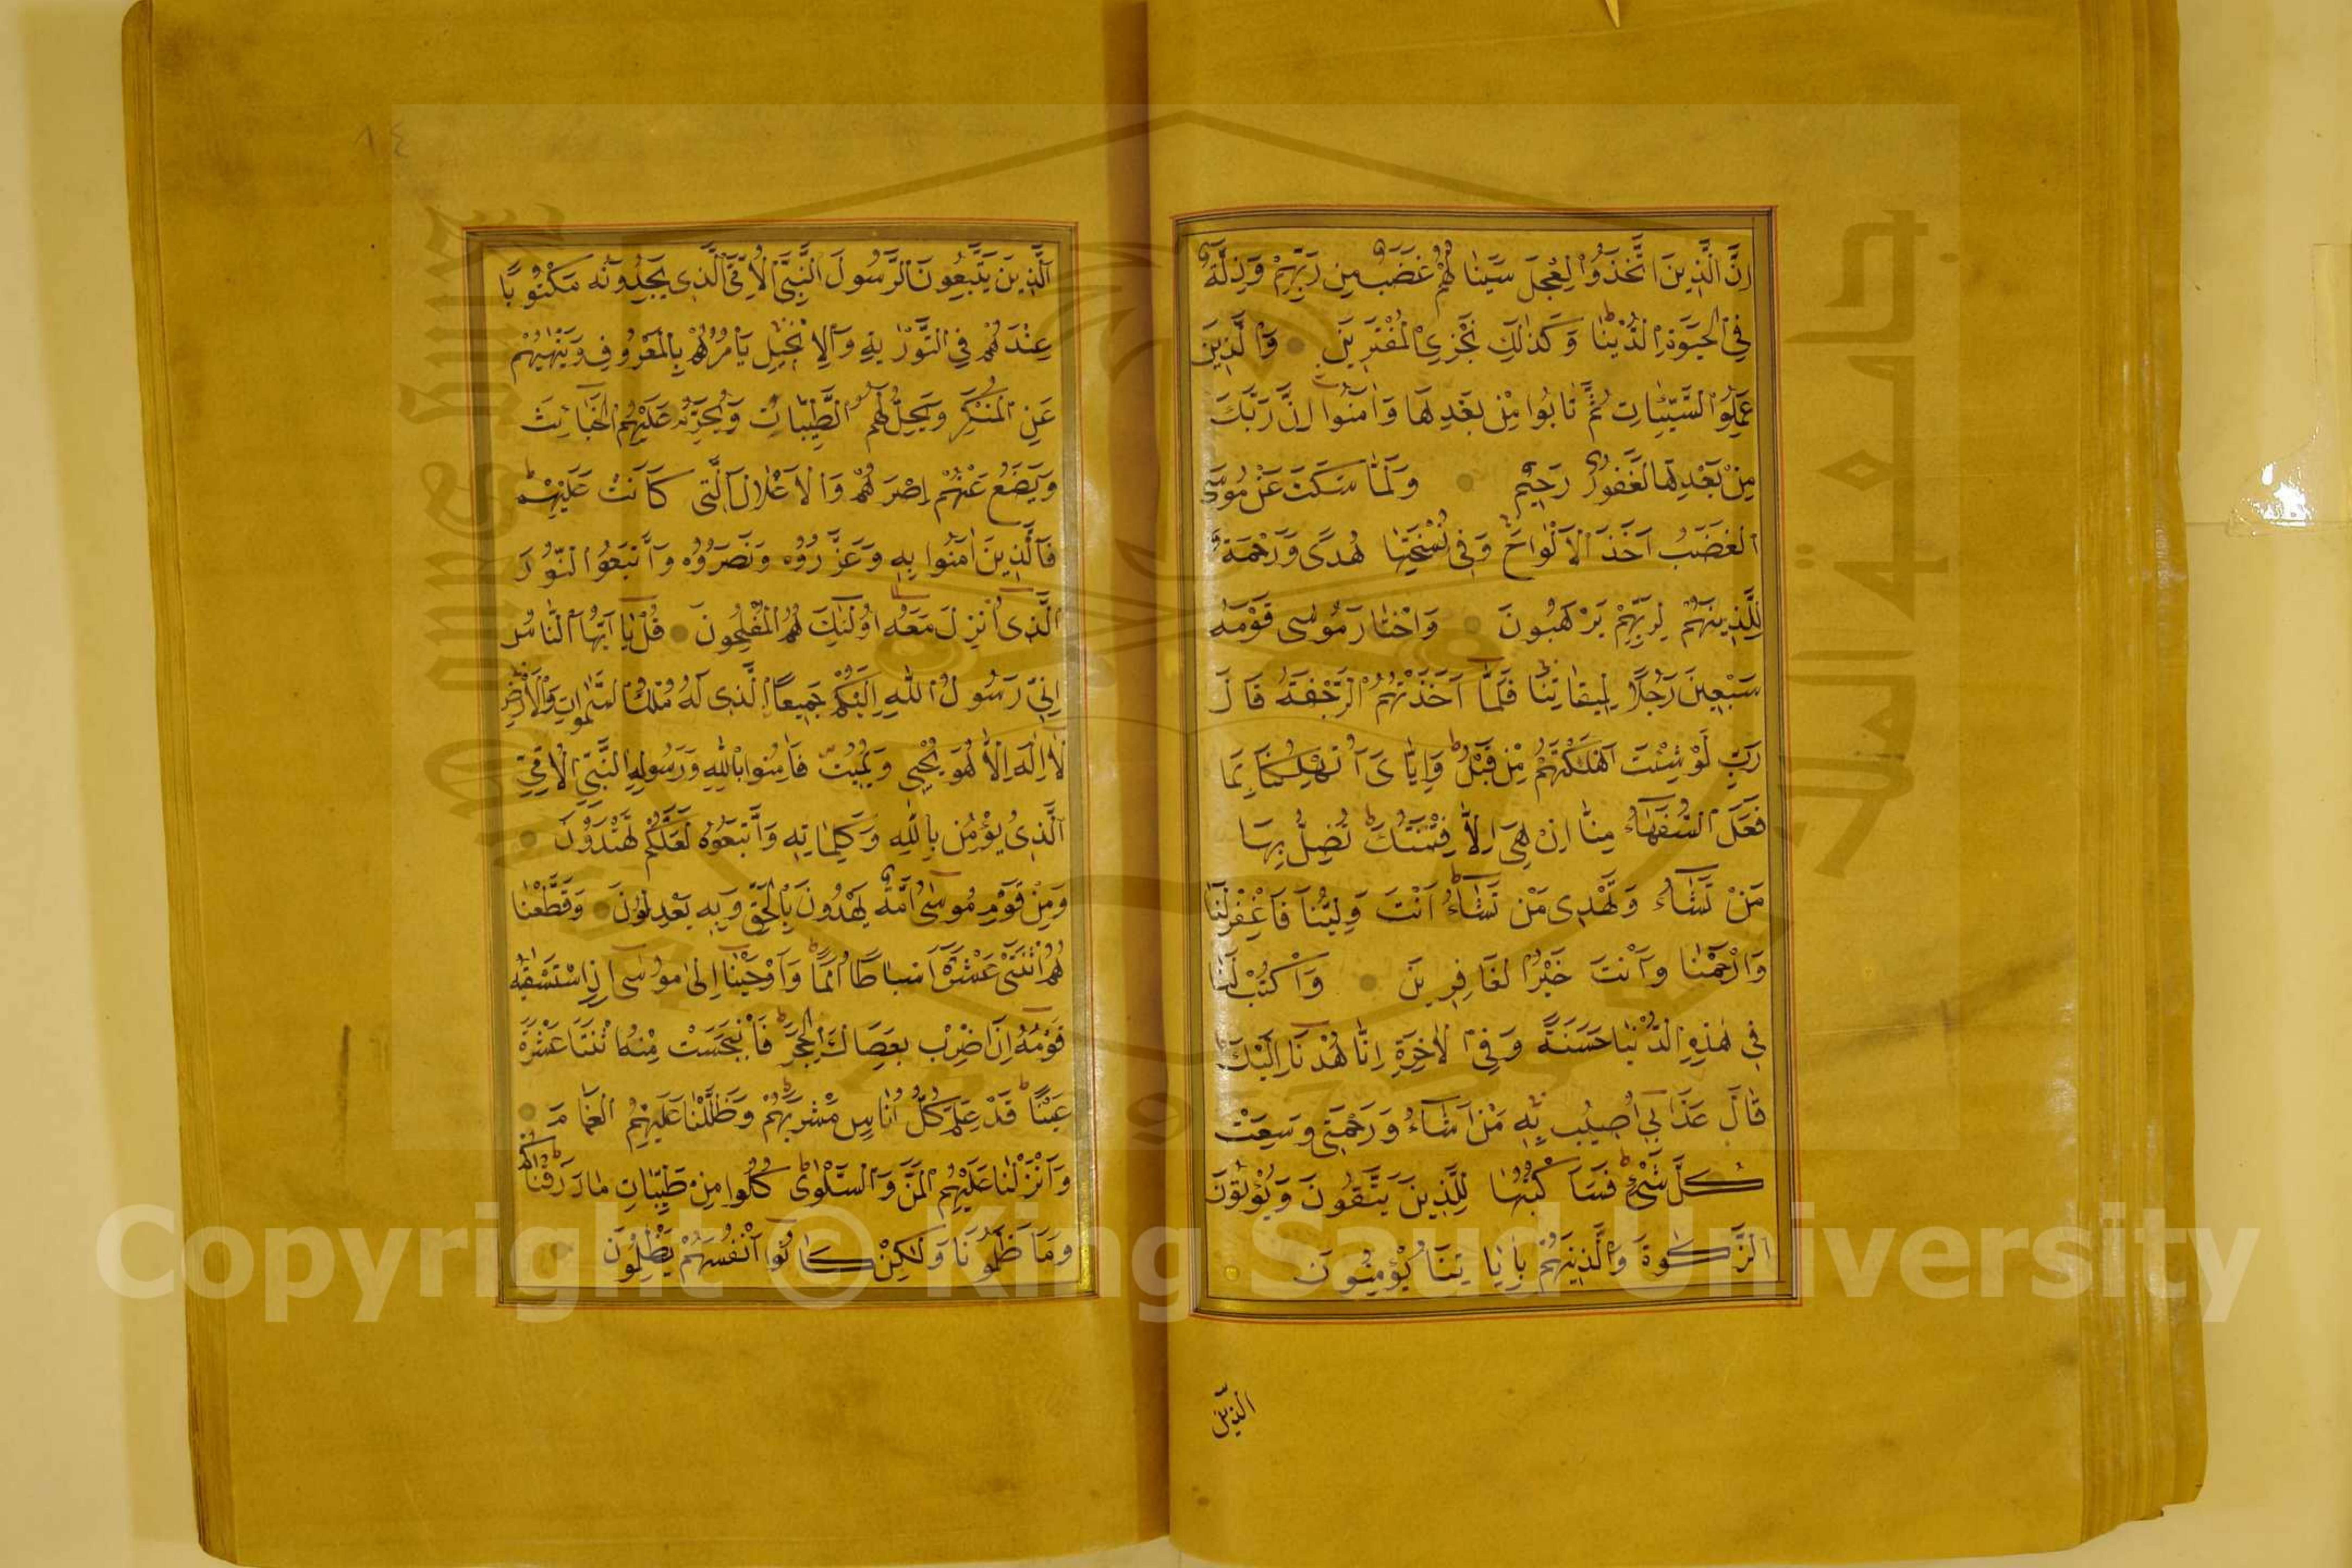 اِنَّ الَّذِينَ اتَّخَذُوا الْعِجْلَ سَيَنَالُهُمْ غَضَبٌ مِنْ رَبِّهِمْ وَذِلَّةٌ
فِي الْحَيٰوةِ الدُّنْيَا وَكَذٰلِكَ نَجْزِي الْمُفْتَرِينَ وَالَّذِينَ
عَمِلُوا السَّيِّئَاتِ ثُمَّ تَابُوا مِنْ بَعْدِهَا وَاٰمَنُوا اِنَّ رَبَّكَ
مِنْ بَعْدِهَا لَغَفُورٌ رَحِيمٌ وَلَمَّا سَكَتَ عَنْ مُوسَى
الْغَضَبُ اَخَذَ الْاَلْوَاحَ وَفِي نُسْخَتِهَا هُدًى وَرَحْمَةٌ
لِلَّذِينَ هُمْ لِرَبِّهِمْ يَرْهَبُونَ وَاخْتَارَ مُوسٰى قَوْمَهُ
سَبْعِينَ رَجُلًا لِمِيقَاتِنَا فَلَمَّا اَخَذَتْهُمُ الرَّجْفَةُ قَالَ
رَبِّ لَوْ شِئْتَ اَهْلَكْتَهُمْ مِنْ قَبْلُ وَاِيَّايَ اَتُهْلِكُنَا بِمَا
فَعَلَ السُّفَهَاءُ مِنَّا اِنْ هِيَ اِلَّا فِتْنَتُكَ تُضِلُّ بِهَا
مَنْ تَشَاءُ وَتَهْدِي مَنْ تَشَاءُ اَنْتَ وَلِيُّنَا فَاغْفِرْ لَنَا
وَارْحَمْنَا وَاَنْتَ خَيْرُ الْغَافِرِينَ وَاكْتُبْ لَنَا
فِي هٰذِهِ الدُّنْيَا حَسَنَةً وَفِي الْاٰخِرَةِ اِنَّا هُدْنَا اِلَيْكَ
قَالَ عَذَابِي اُصِيبُ بِهِ مَنْ اَشَاءُ وَرَحْمَتِي وَسِعَتْ
كُلَّ شَيْءٍ فَسَاَكْتُبُهَا لِلَّذِينَ يَتَّقُونَ وَيُؤْتُونَ
الزَّكٰوةَ وَالَّذِينَ هُمْ بِاٰيَاتِنَا يُؤْمِنُونَ
الذين
٨٤
اَلَّذِينَ يَتَّبِعُونَ الرَّسُولَ النَّبِيَّ الْاُمِّيَّ الَّذِي يَجِدُونَهُ مَكْتُوبًا
عِنْدَهُمْ فِي التَّوْرٰيةِ وَالْاِنْجِيلِ يَاْمُرُهُمْ بِالْمَعْرُوفِ وَيَنْهٰيهُمْ
عَنِ الْمُنْكَرِ وَيُحِلُّ لَهُمُ الطَّيِّبَاتِ وَيُحَرِّمُ عَلَيْهِمُ الْخَبَائِثَ
وَيَضَعُ عَنْهُمْ اِصْرَهُمْ وَالْاَغْلَالَ الَّتِي كَانَتْ عَلَيْهِمْ
فَالَّذِينَ اٰمَنُوا بِهِ وَعَزَّرُوهُ وَنَصَرُوهُ وَاتَّبَعُوا النُّورَ
الَّذِي اُنْزِلَ مَعَهُ اُولٰئِكَ هُمُ الْمُفْلِحُونَ قُلْ يَا اَيُّهَا النَّاسُ
اِنِّي رَسُولُ اللّٰهِ اِلَيْكُمْ جَمِيعًا الَّذِي لَهُ مُلْكُ السَّمٰوَاتِ وَالْاَرْضِ
لَا اِلٰهَ اِلَّا هُوَ يُحْيِي وَيُمِيتُ فَاٰمِنُوا بِاللّٰهِ وَرَسُولِهِ النَّبِيِّ الْاُمِّيِّ
الَّذِي يُؤْمِنُ بِاللّٰهِ وَكَلِمَاتِهِ وَاتَّبِعُوهُ لَعَلَّكُمْ تَهْتَدُونَ
وَمِنْ قَوْمِ مُوسٰى اُمَّةٌ يَهْدُونَ بِالْحَقِّ وَبِهِ يَعْدِلُونَ وَقَطَّعْنَا
هُمُ اثْنَتَيْ عَشْرَةَ اَسْبَاطًا اُمَمًا وَاَوْحَيْنَا اِلٰى مُوسٰى اِذِ اسْتَسْقٰيهُ
قَوْمُهُ اَنِ اضْرِبْ بِعَصَاكَ الْحَجَرَ فَانْبَجَسَتْ مِنْهُ اثْنَتَا عَشْرَةَ
عَيْنًا قَدْ عَلِمَ كُلُّ اُنَاسٍ مَشْرَبَهُمْ وَظَلَّلْنَا عَلَيْهِمُ الْغَمَامَ
وَاَنْزَلْنَا عَلَيْهِمُ الْمَنَّ وَالسَّلْوٰى كُلُوا مِنْ طَيِّبَاتِ مَا رَزَقْنَاكُمْ
وَمَا ظَلَمُونَا وَلٰكِنْ كَانُوا اَنْفُسَهُمْ يَظْلِمُونَ
Copyright © King Saud University